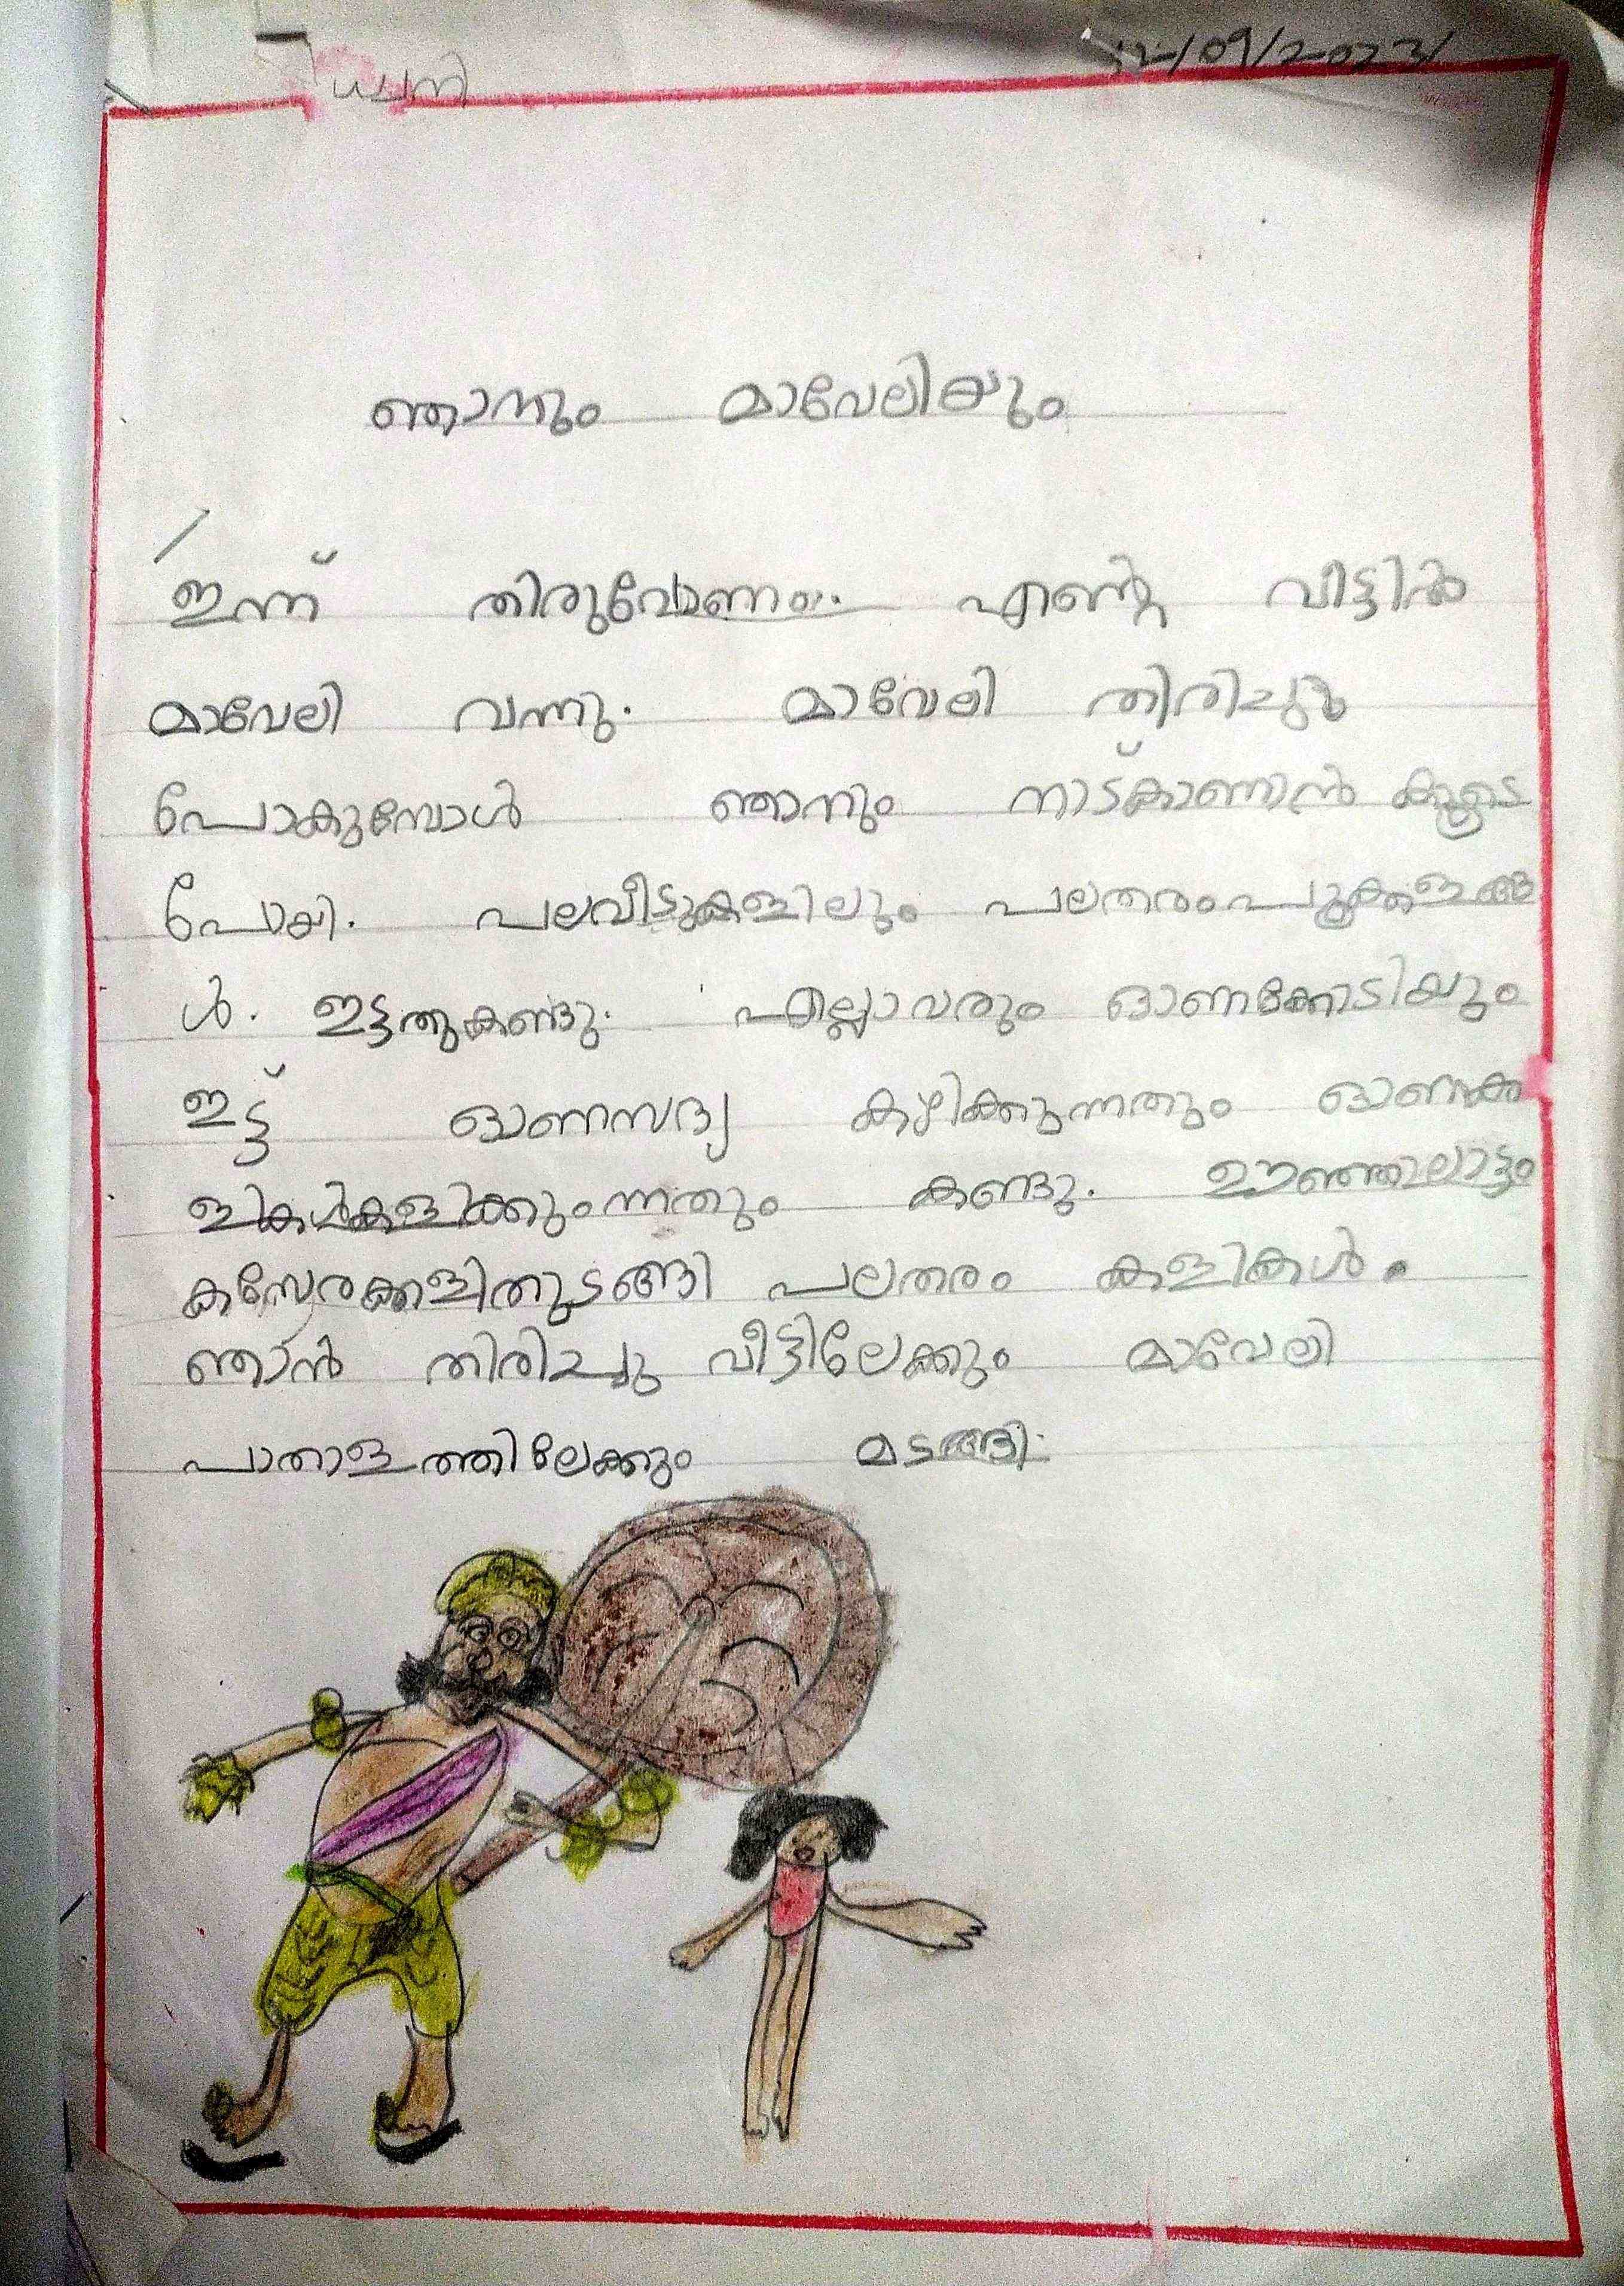 12/09/2023
ഞാനും മാവേലിയും
ഇന്ന് തിരുവോണം. എന്റെ വീട്ടിൽ
മാവേലി വന്നു. മാവേലി തിരിച്ചു
പോകുമ്പോൾ ഞാനും നാട്കാണാൻ കൂടെ
പോയി. പലവീടുകളിലും പലതരംപൂക്കളങ്ങ
ൾ. ഇട്ടതുകണ്ടു. എല്ലാവരും ഓണക്കോടിയും
ഇട്ട് ഓണസദ്യ കഴിക്കുന്നതും ഓണക്ക
ളികൾകളിക്കുംന്നതും കണ്ടു. ഊഞ്ഞാലാട്ടം
കസേരക്കളിതുടങ്ങി പലതരം കളികൾ.
ഞാൻ തിരിച്ചു വീട്ടിലേക്കും മാവേലി
പാതാളത്തിലേക്കും മടങ്ങി.